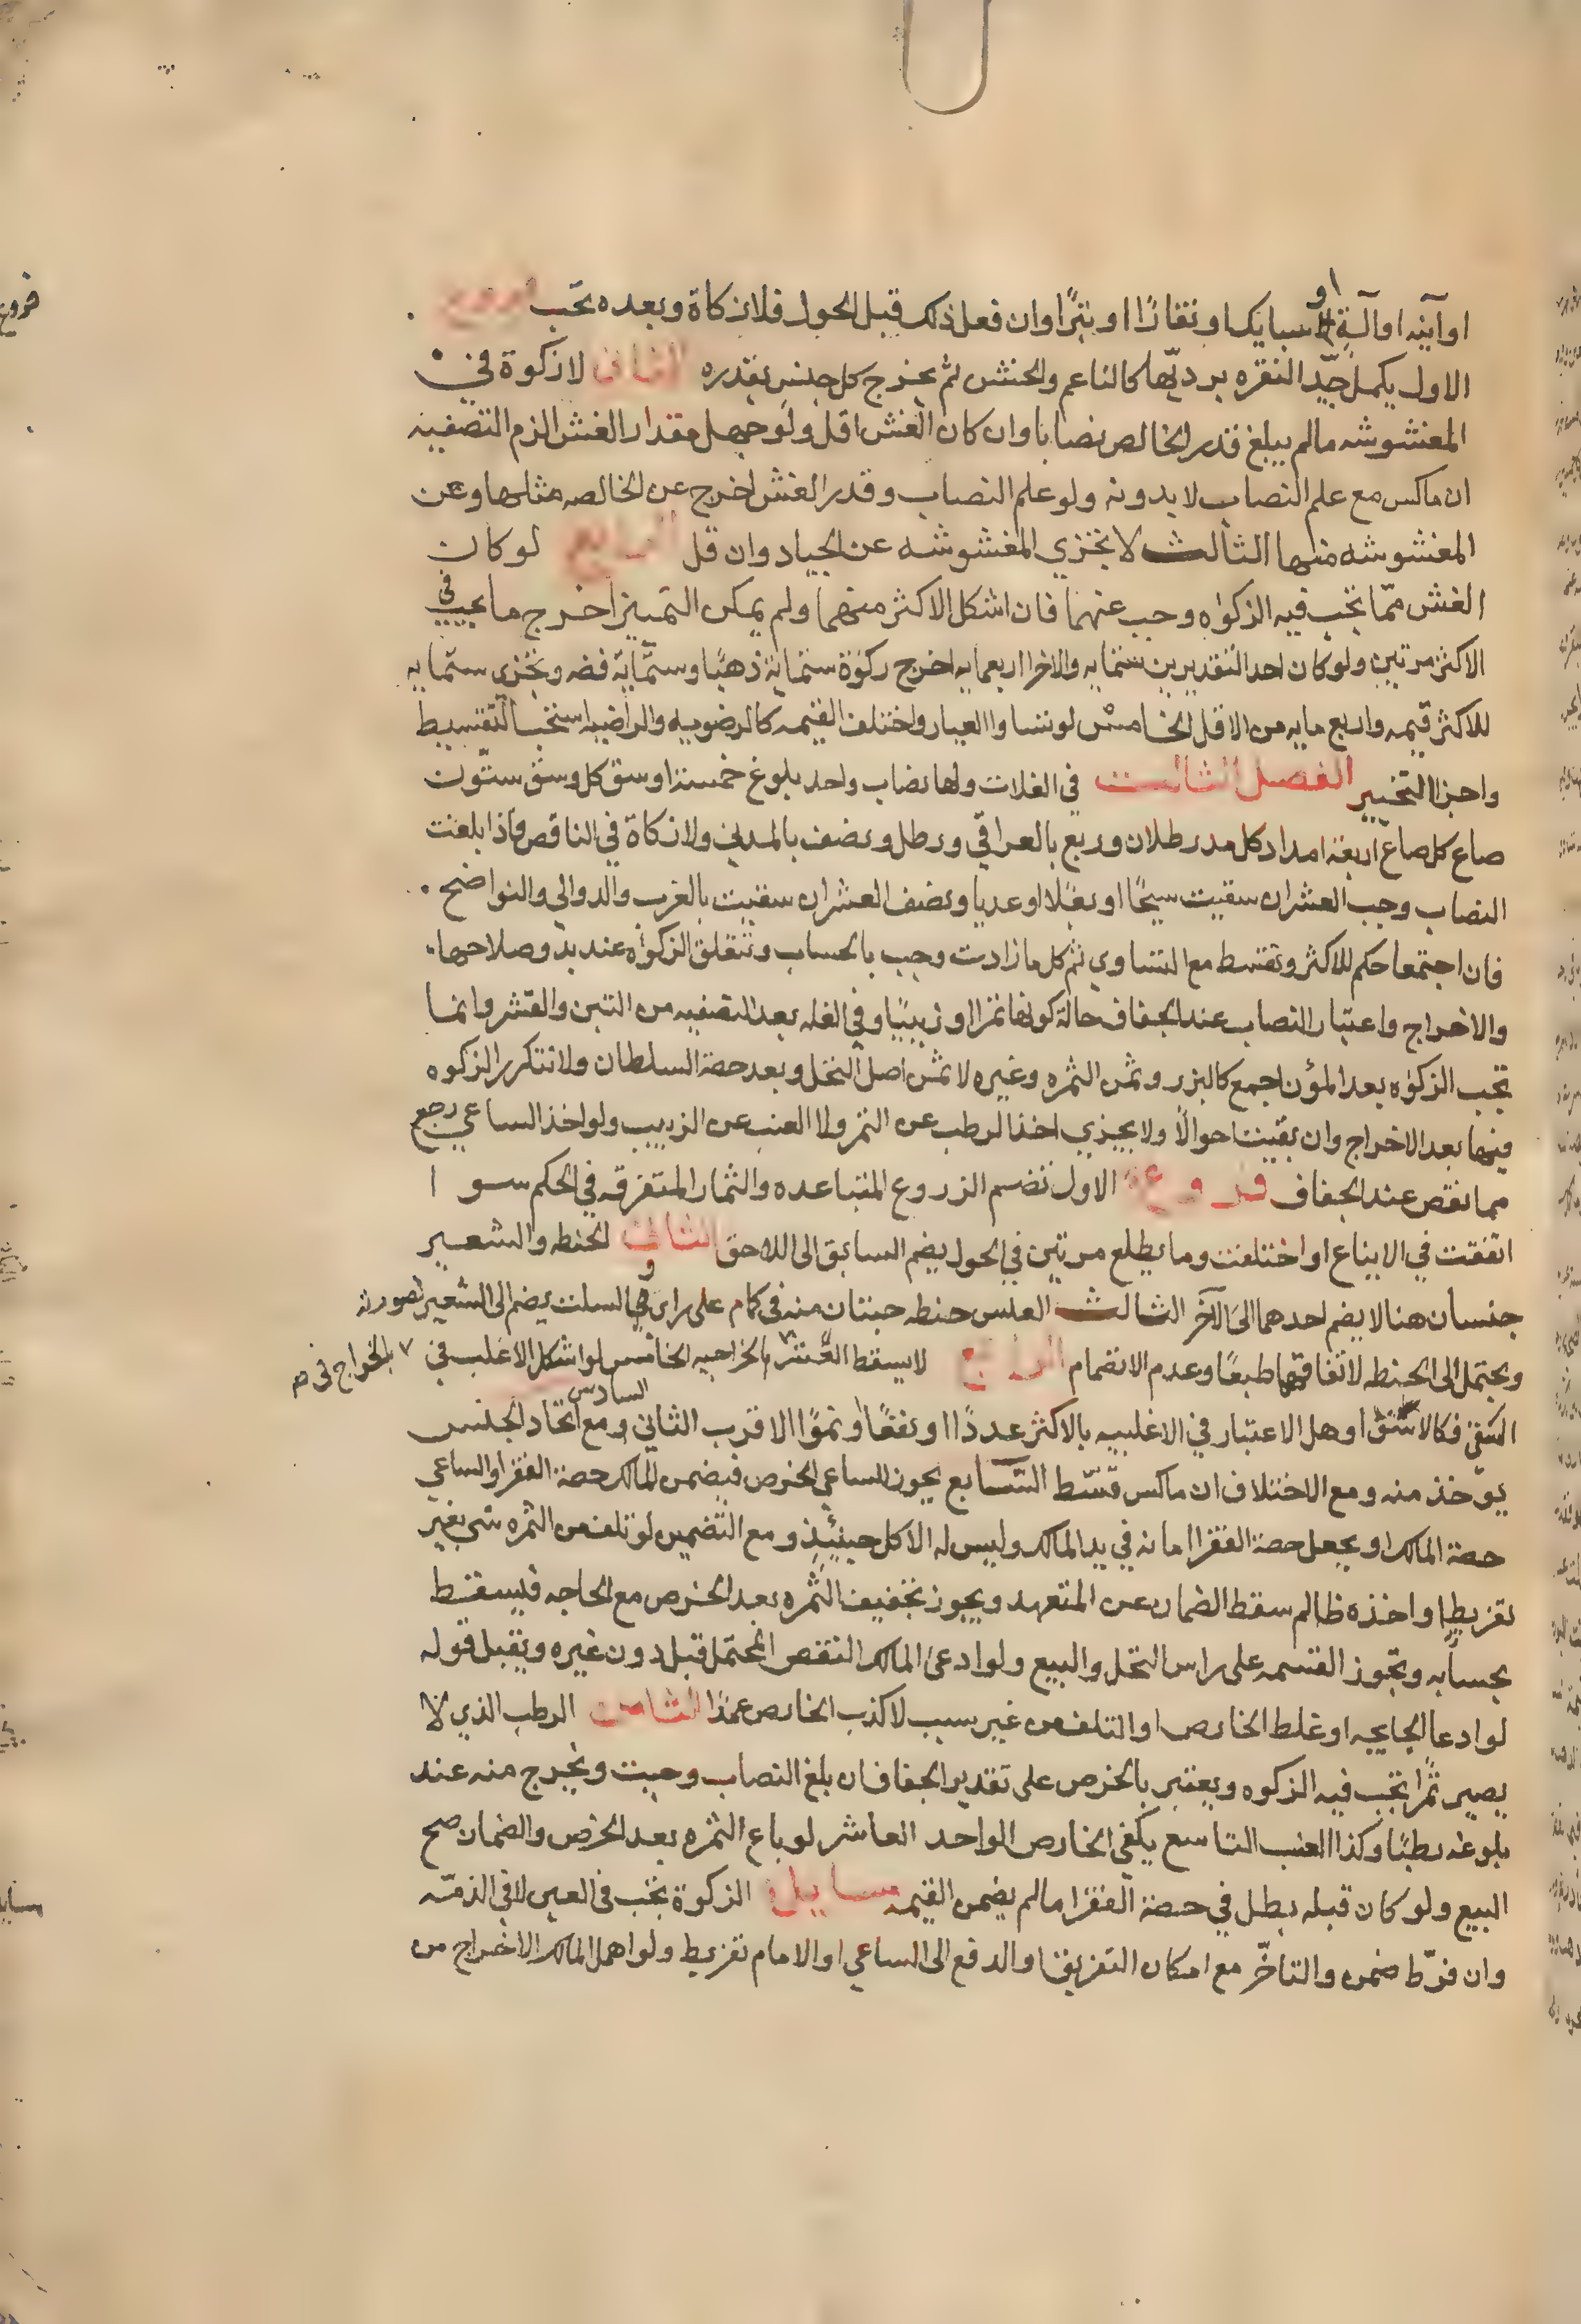 او آنيه او آلةِ او سبايك او نقارًا او تبرًا وان فعل ذلك قبل الحول فلا زكاة وبعده تجب فروع
الاول يكمل جيّد النقره برديّها كالناعم والخشن ثم يخرج كل جنس بقدره الثاني لا زكوة في
المغشوشه مالم يبلغ قدر الخالص نصابا وان كان الغش اقل ولو جهل مقدار الغش الزم التصفيه
ان ماكس مع علم النصاب لا بدونه ولو علم النصاب وقدر الغش اخرج عن الخالصه مثلها وعن
المغشوشه منها الثالث لا تجزي المغشوشه عن الجياد وان قل الرابع لو كان
الغش ممّا تجب فيه الزكوٰه وجب عنهما فان اشكل الاكثر منهما ولم يمكن التمييز اخرج ما يجب في
الاكثر مرتين ولو كان احد النقدين ستمايه والاخر اربعمايه اخرج زكوٰة ستماية ذهبًا وستماية فضه وتجزى ستمايه
للاكثر قيمه واربع مايه من الاقل الخامس لو تساوا العيار واختلف القيمه كالرضويه والراضيه استحب التقسيط
واجزا التخيير الفصل الثالث في الغلات ولها نصاب واحد بلوغ خمسة اوسق كل وسق ستّون
صاع كل صاع اربعة امداد كل مد رطلان وربع بالعراقي ورطل ونصف بالمدني ولا زكاة في الناقص فاذا بلغت
النصاب وجب العشر ان سقيت سيحًا او بعلا او عديا ونصف العشر ان سقيت بالغرب والدوالي والنواضح
فان اجتمعا حكم للاكثر وتقسط مع التساوي ثم كل ما زادت وجب بالحساب وتتعلق الزكوٰه عند بدو صلاحها
والاخراج واعتبار النصاب عند الجفاف حالة كونها تمرا او زبيبًا وفي الغله بعد التصفيه من التبن والقشر وانما
تجب الزكوٰه بعد المؤن اجمع كالبزر وثمن الثمره وغيره لا ثمن اصل النخل وبعد حصة السلطان ولا تتكرر الزكوه
فيها بعد الاخراج وان بقيت احوالًا ولا يجزي اخذ الرطب عن التمر ولا العنب عن الزبيب ولو اخذ الساعي رجع
مما نقص عند الجفاف فروع الاول تضم الزروع المتباعده والثمار المتفرقه في الحكم سوا
اتفقت في الايناع او اختلفت وما يطلع مرتين في الحول يضم السابق الى اللاحق الثاني الحنطه والشعير
جنسان هنا لا يضم احدهما الى الآخر الثالث العلس حنطه حبتان منه في كمام على راى و السلت يضم الى الشعير لصورته
ويحتمل الى الحنطه لاتفاقهما طبعًا وعدم الانضمام الرابع لا يسقط العُشر بالخراج في الخراجيه الخامس لو اشكل الاغلب في
السقى فكالاستوا وهل الاعتبار في الاغلبيه بالاكثر عددًا او نفعًا او نموًا الاقرب الثاني السادس ومع اتحاد الجنس
يوخذ منه ومع الاختلاف ان ماكس قسّط السّابع يجوز للساعي الخرص فيضمن المالك حصة الفقرا والساعي
حصة المالك او يجعل حصة الفقرا امانه في يد المالك وليس له الاكل حينئذٍ ومع التضمين لو تلف من الثمره شي بغير
تفريط او اخذه ظالم سقط الضمان عن المتعهد ويجوز تخفيف الثمره بعد الخرص مع الحاجه فيسقط
بحسابه وتجوز القسمه على راس النخل والبيع ولو ادعى المالك النقص المحتمل قبل دون غيره ويقبل قوله
لو ادعا الجايحه او غلط الخارص او التلف من غير سبب لا كذب الخارص عمدًا الثامن الرطب الذي لا
يصير تمرًا تجب فيه الزكوه ويعتبر بالخرص على تقدير الجفاف ان بلغ النصاب وجبت ويخرج منه عند
بلوغه رطبًا وكذا العنب التاسع يكفي الخارص الواحد العاشر لو باع الثمره بعد الخرص والضمان صح
البيع ولو كان قبله بطل في حصة الفقرا مالم يضمن القيمه مسايل الزكوة تجب في العين لا في الذمّه
وان فرّط ضمن والتاخّر مع امكان التفريق او الدفع الى الساعي او الامام تفريط ولو اهمل المالك الاخراج من